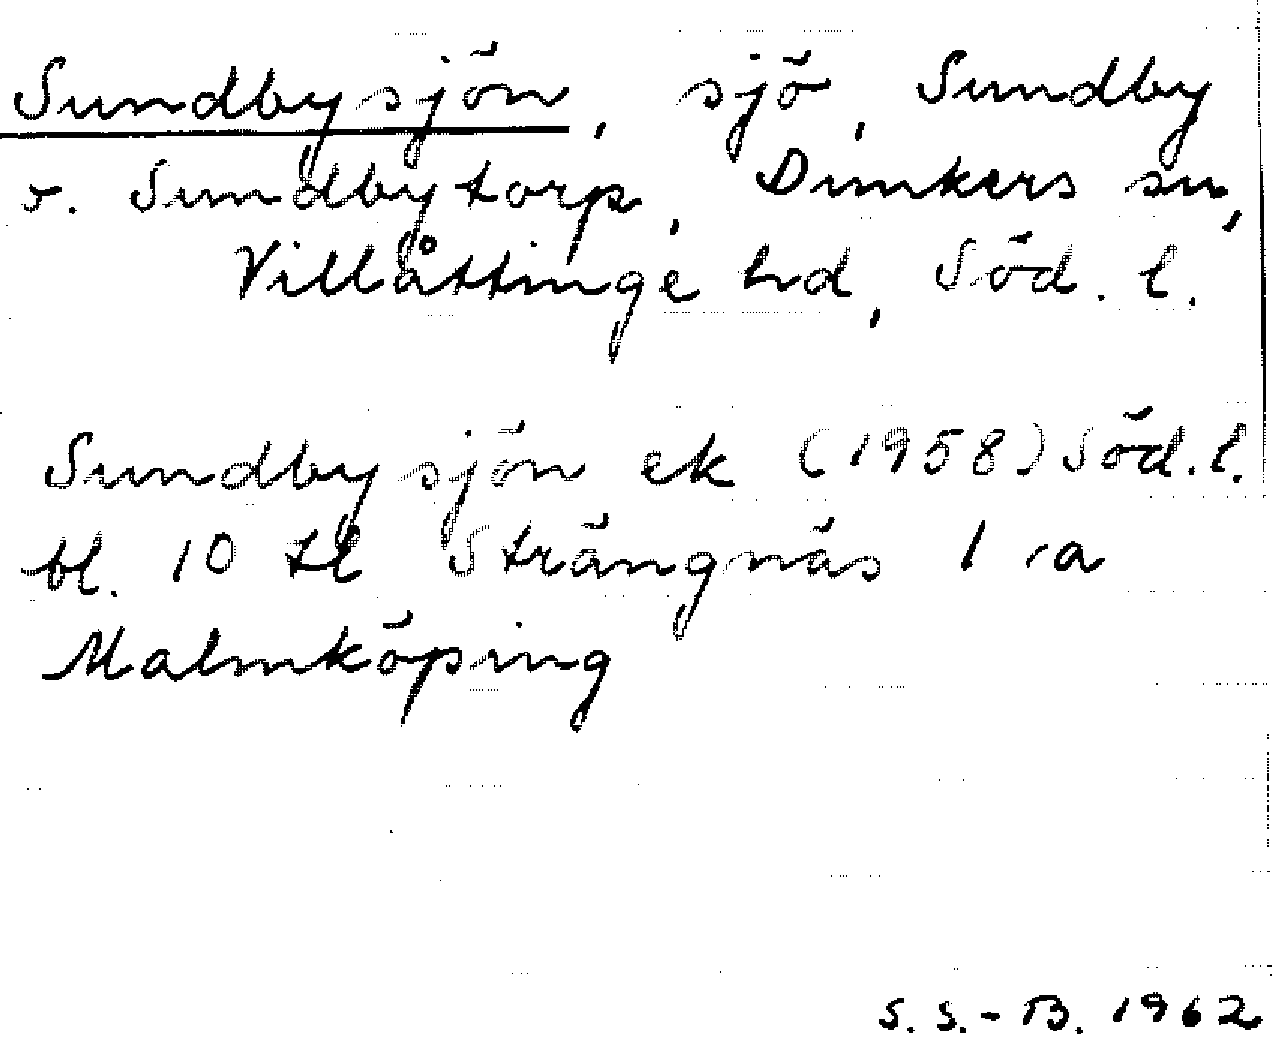 Sundbysjön, sjö, Sundby
o. Sundbytorp, Dunkers sn,
Villåttinge hd, Söd. l.
Sundbysjön ek (1958) Söd. l.
bl. 10 tl Strängnäs 1 ra
Malmköping
S. S.-B. 1962